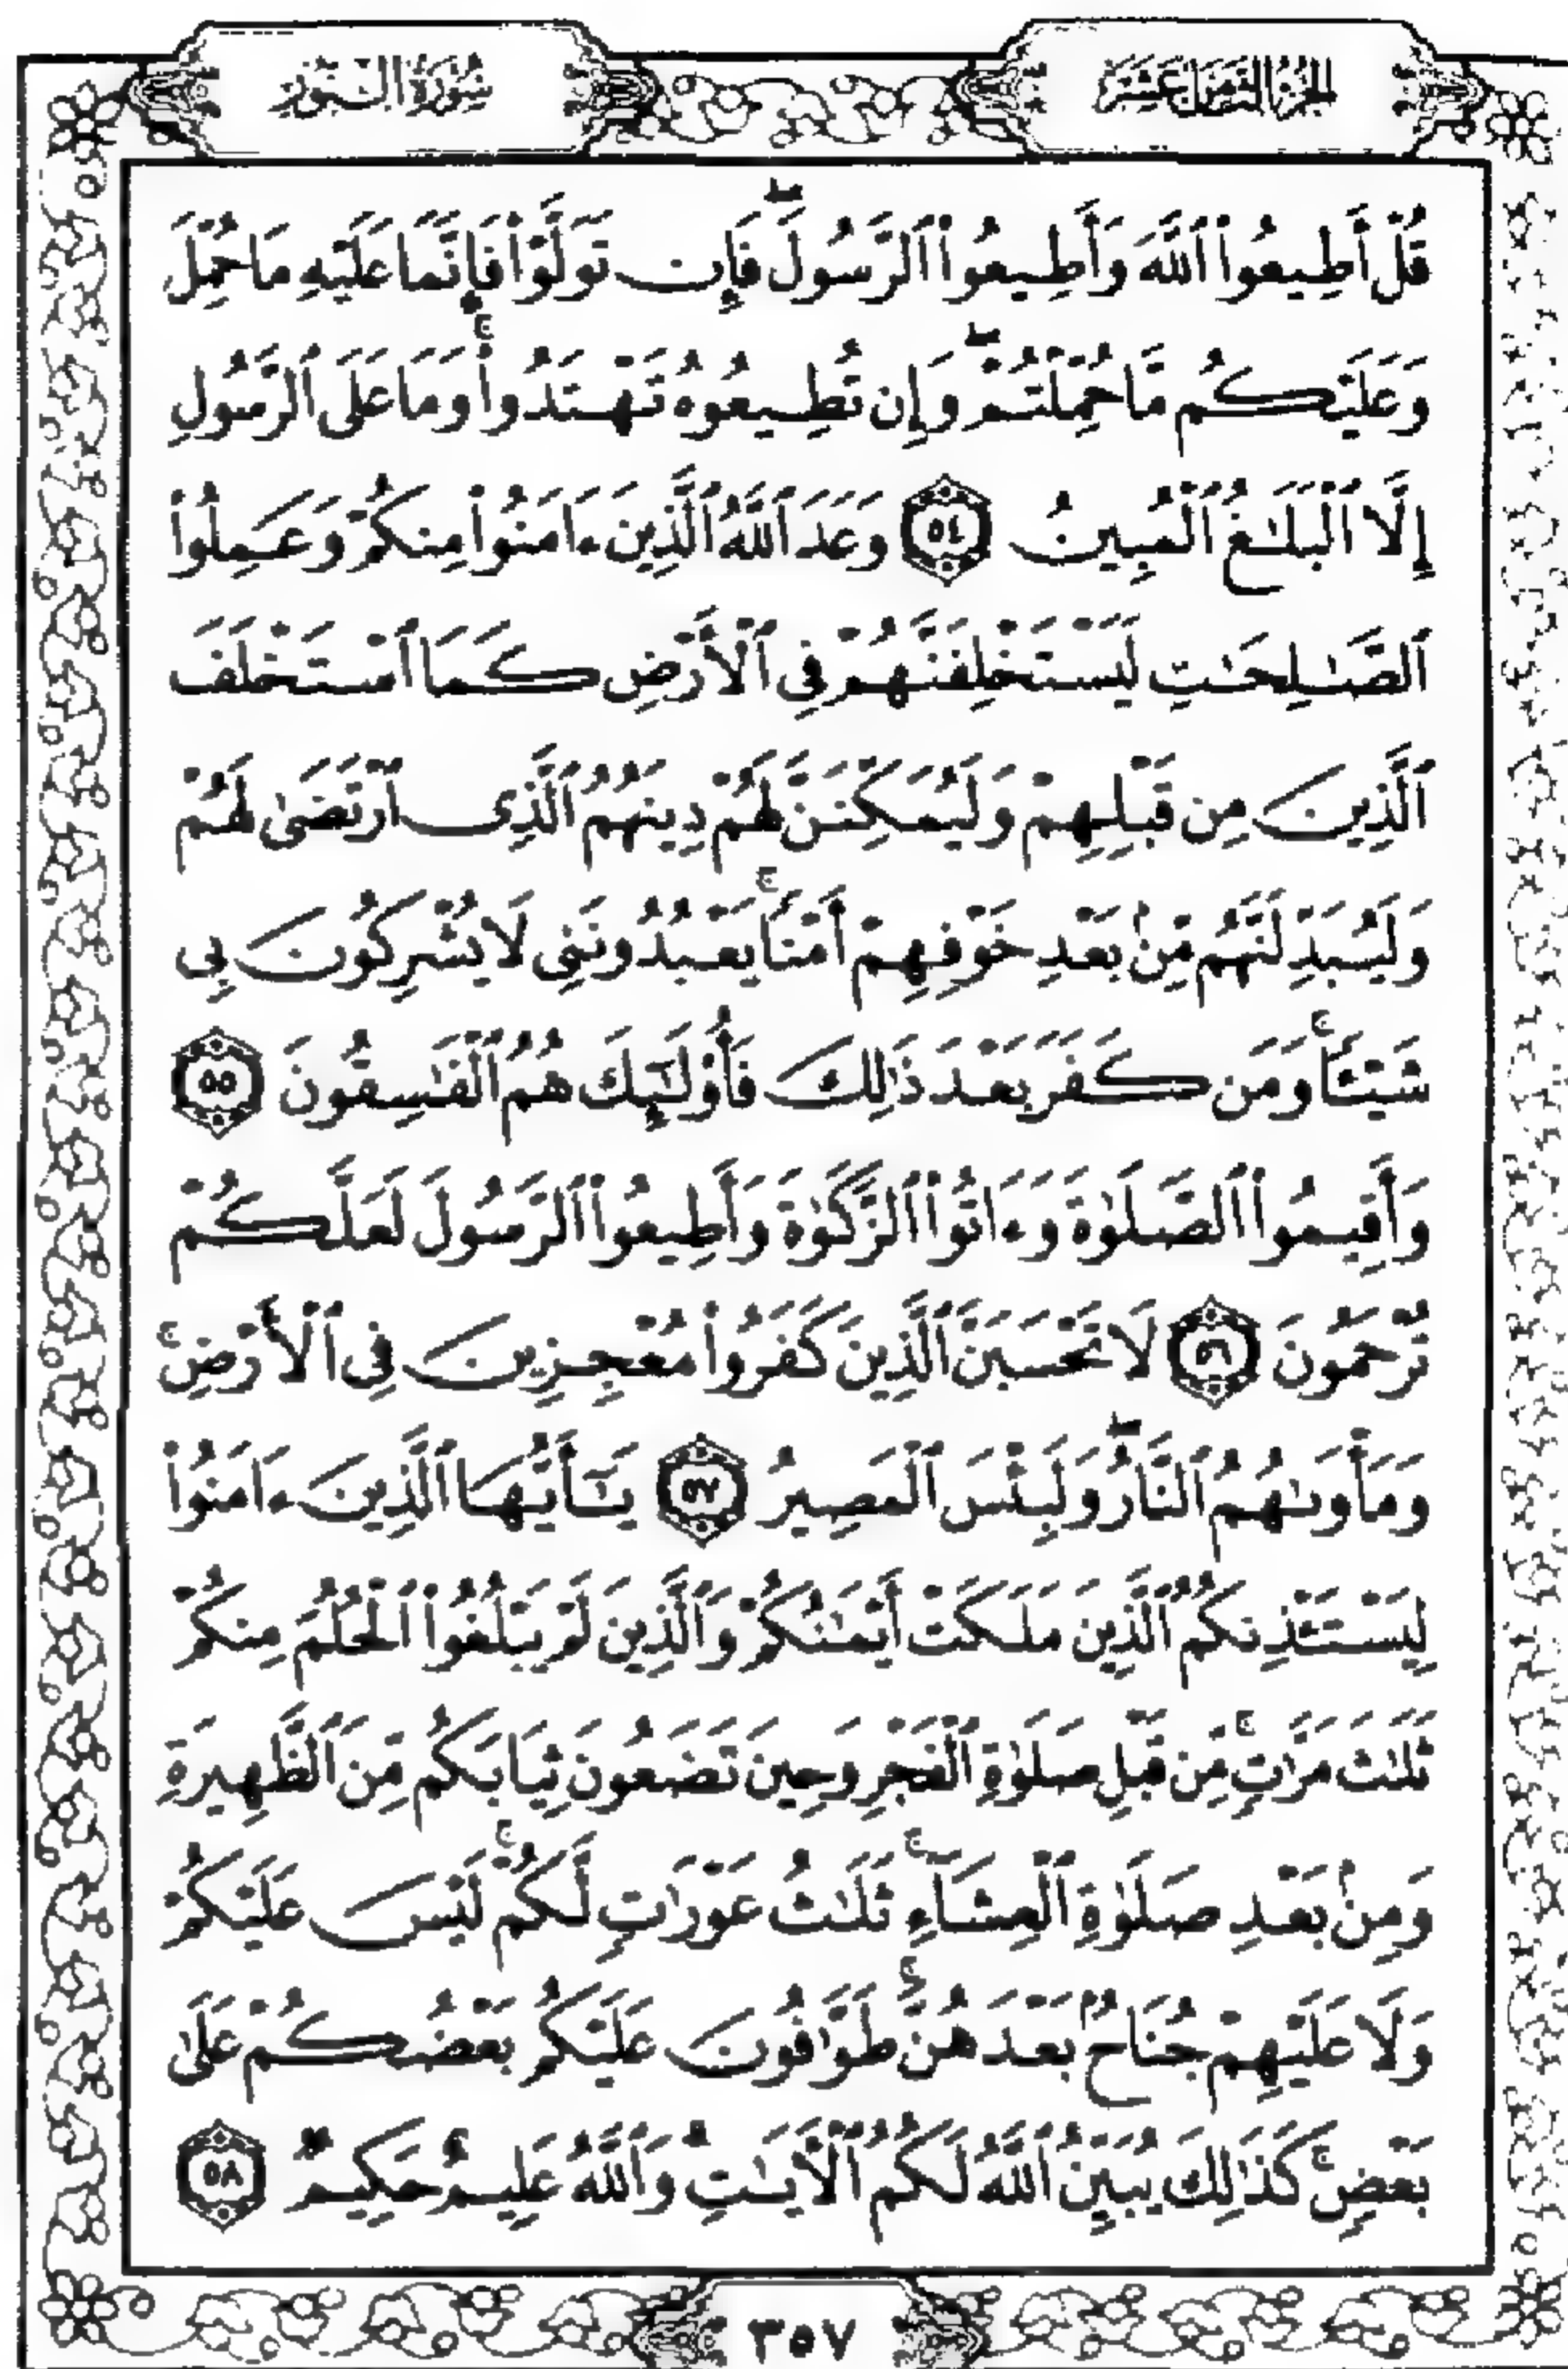 الجزء الثامن عشر
سورة النور
قُلْ أَطِيعُوا۟ ٱللَّهَ وَأَطِيعُوا۟ ٱلرَّسُولَۖ فَإِن تَوَلَّوْا۟ فَإِنَّمَا عَلَيْهِ مَا حُمِّلَ
وَعَلَيْكُم مَّا حُمِّلْتُمْۖ وَإِن تُطِيعُوهُ تَهْتَدُوا۟ۚ وَمَا عَلَى ٱلرَّسُولِ
إِلَّا ٱلْبَلَٰغُ ٱلْمُبِينُ ٥٤ وَعَدَ ٱللَّهُ ٱلَّذِينَ ءَامَنُوا۟ مِنكُمْ وَعَمِلُوا۟
ٱلصَّٰلِحَٰتِ لَيَسْتَخْلِفَنَّهُمْ فِى ٱلْأَرْضِ كَمَا ٱسْتَخْلَفَ
ٱلَّذِينَ مِن قَبْلِهِمْ وَلَيُمَكِّنَنَّ لَهُمْ دِينَهُمُ ٱلَّذِى ٱرْتَضَىٰ لَهُمْ
وَلَيُبَدِّلَنَّهُم مِّنۢ بَعْدِ خَوْفِهِمْ أَمْنًاۚ يَعْبُدُونَنِى لَا يُشْرِكُونَ بِى
شَيْـًٔاۚ وَمَن كَفَرَ بَعْدَ ذَٰلِكَ فَأُو۟لَٰٓئِكَ هُمُ ٱلْفَٰسِقُونَ ٥٥
وَأَقِيمُوا۟ ٱلصَّلَوٰةَ وَءَاتُوا۟ ٱلزَّكَوٰةَ وَأَطِيعُوا۟ ٱلرَّسُولَ لَعَلَّكُمْ
تُرْحَمُونَ ٥٦ لَا تَحْسَبَنَّ ٱلَّذِينَ كَفَرُوا۟ مُعْجِزِينَ فِى ٱلْأَرْضِۚ
وَمَأْوَىٰهُمُ ٱلنَّارُۖ وَلَبِئْسَ ٱلْمَصِيرُ ٥٧ يَٰٓأَيُّهَا ٱلَّذِينَ ءَامَنُوا۟
لِيَسْتَـْٔذِنكُمُ ٱلَّذِينَ مَلَكَتْ أَيْمَٰنُكُمْ وَٱلَّذِينَ لَمْ يَبْلُغُوا۟ ٱلْحُلُمَ مِنكُمْ
ثَلَٰثَ مَرَّٰتٍۚ مِّن قَبْلِ صَلَوٰةِ ٱلْفَجْرِ وَحِينَ تَضَعُونَ ثِيَابَكُم مِّنَ ٱلظَّهِيرَةِ
وَمِنۢ بَعْدِ صَلَوٰةِ ٱلْعِشَآءِۚ ثَلَٰثُ عَوْرَٰتٍ لَّكُمْۚ لَيْسَ عَلَيْكُمْ
وَلَا عَلَيْهِمْ جُنَاحٌۢ بَعْدَهُنَّۚ طَوَّٰفُونَ عَلَيْكُم بَعْضُكُمْ عَلَىٰ
بَعْضٍۚ كَذَٰلِكَ يُبَيِّنُ ٱللَّهُ لَكُمُ ٱلْـَٔايَٰتِۗ وَٱللَّهُ عَلِيمٌ حَكِيمٌ ٥٨
٣٥٧